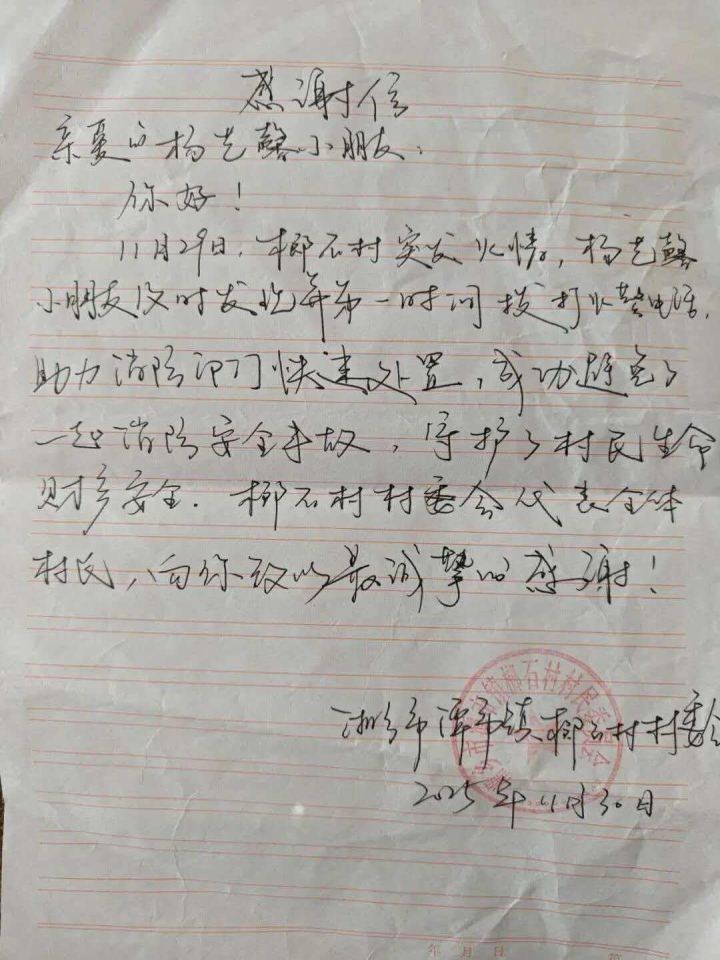 感谢信
亲爱的杨艺馨小朋友：
你好！
11月29日，榔石村突发火情，杨艺馨
小朋友及时发现并第一时间拨打火警电话，
助力消防部门快速处置，成功避免了
一起消防安全事故，守护了村民生命
财产安全．榔石村村委会代表全体
村民，向你致以最诚挚的感谢！
湘乡市潭市镇榔石村村委会
2025年11月30日
榔石村村民委员会
年 月 日
第